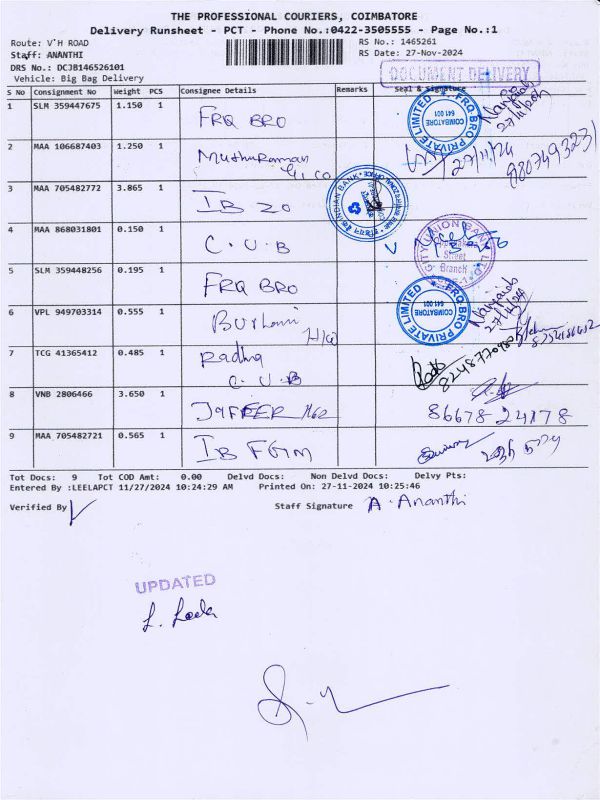 THE PROFESSIONAL COURIERS, COIMBATORE
Delivery Runsheet - PCT - Phone No.:0422-3505555 - Page No.:1
Route: V'H ROAD RS No.: 1465261
Staff: ANANTHI RS Date: 27-Nov-2024
DRS No.: DCJB146526101
Vehicle: Big Bag Delivery
DOCUMENT DELIVERY
S No Consignment No Weight PCS Consignee Details Remarks Seal & Signature
1 SLM 359447675 1.150 1 FRQ BRO
FRQ BRO PRIVATE LIMITED COIMBATORE 641 001
27/11/24
2 MAA 106687403 1.250 1 Muthuraman
27/11/24
3 MAA 705482772 3.865 1 IB ZO
INDIAN BANK
4 MAA 868031801 0.150 1 C.U.B
CITY UNION BANK LTD
Street
Branch
5 SLM 359448256 0.195 1 FRQ BRO
FRQ BRO PRIVATE LIMITED COIMBATORE 641 001
6 VPL 949703314 0.555 1 Burhani H/W
7 TCG 41365412 0.485 1 Radha
C.U.B
8 VNB 2806466 3.650 1 JAFFER 86678 24178
9 MAA 705482721 0.565 1 IB FGTM
Tot Docs: 9 Tot COD Amt: 0.00 Delvd Docs: Non Delvd Docs: Delvy Pts:
Entered By :LEELAPCT 11/27/2024 10:24:29 AM Printed On: 27-11-2024 10:25:46
Verified By Staff Signature A. Ananthi
UPDATED
L. Leela